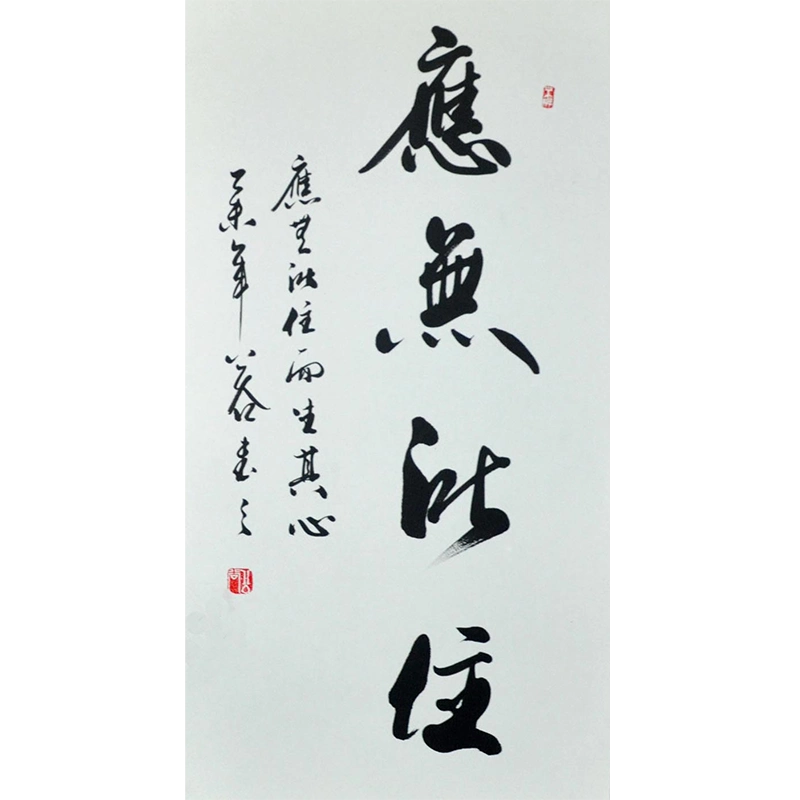 應無所住
應無所住而生其心
乙未年 書之